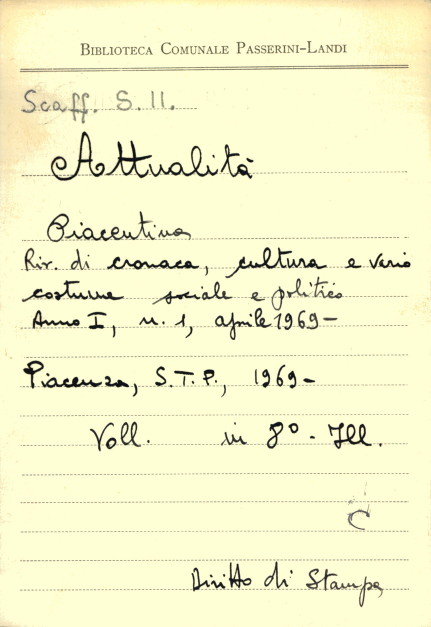 BIBLIOTECA COMUNALE PASSERINI-LANDI
Scaff. S. 11.
Attualità
Piacentina
Riv. di cronaca, cultura e vario
costume sociale e politico
Anno I, n. 1, aprile 1969-
Piacenza, S.T.P., 1969-
Voll. in 8° - Ill.
C
Diritto di Stampa